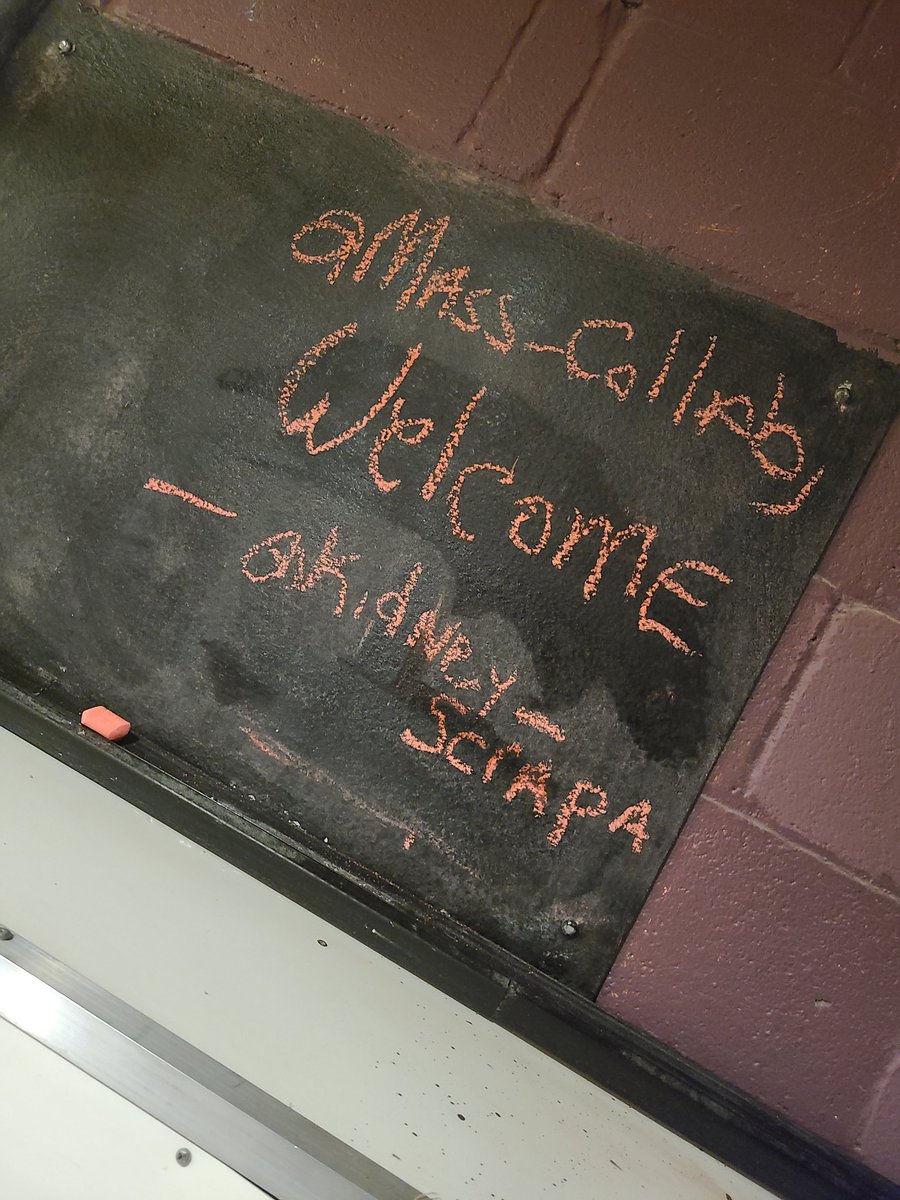 @Mass-Collab,
Welcome
- @Kidney-
Scrapa